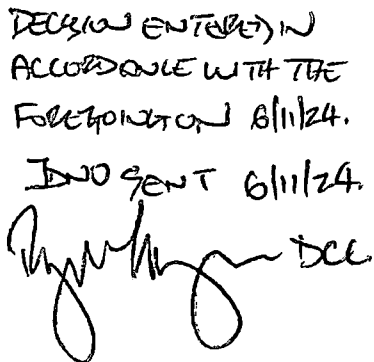 DECISION ENTERED IN
ACCORDANCE WITH THE
FOREGOING ON 6/11/24.
JDNO SENT 6/11/24.
DCC.